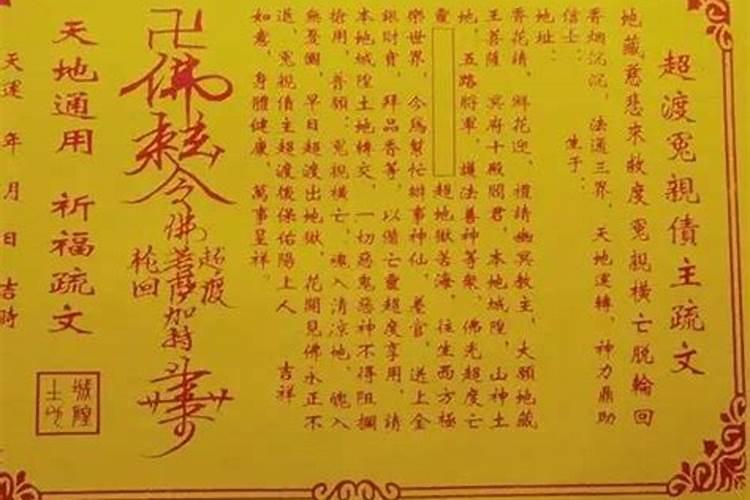 超渡冤親債主疏文
地藏慈悲來救度冤親橫亡脫輪回
香烟沉沉，法通三界，天地運轉，神力鼎助
信士：　生于：
地址：
香花請，鮮花迎，禮請幽冥教主，大願地藏
王菩薩　冥府十殿閻君，本地城隍，山神土
地，五路將軍，護法善神等衆，佛光超度亡
靈　超地獄苦海，往生西方極
樂世界，今為幫忙辦事神仙，差官，送上金
銀財寶，拜品香等，以備亡靈超度享用，請
本地城隍土地轉交，一切惡鬼惡神不得阻攔
搶用，普願：冤親橫亡，魂入清凉地，魄入
無憂國，早日超渡出地獄，花開見佛永正不
退，冤親債主超渡後保佑陽上人　吉祥
如意，身體健康，萬事呈祥。
卍佛
令佛菩薩加持
超渡
輪回
天地通用　祈福疏文
城隍
天運　年　月　日　吉時